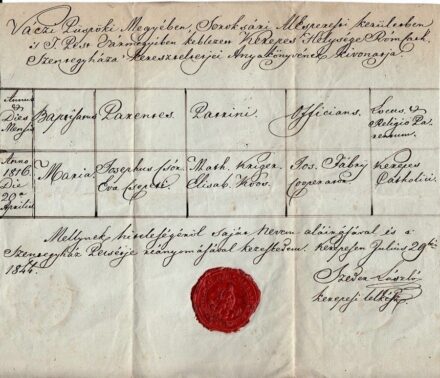 Váczi Püspöki Megyében, Soroksári Alesperesti kerületben
is T. Pest Vármegyében keblezett Kerepes Helysége Rom. Kath.
Szentegyháza keresztelteti Anyakönyvének kivonatja
Annus & Dies Mensis
Baptisatus
Parentes
Patrini
Officians
Locus & Religio Parentum.
Anno 1816. Die 20a Aprilis
Maria
Josephus
Éva
Math. Kriger
Elisab. Koós
Jos. Fábry Cooperator
Kerepes Catholici
Mellynek hitelességéről saját nevem aláírásával és a
Szentegyház Petsétje reányomásával kezeskedem. Kerepesen Julius 29én
1844.
Szeder László
kerepesi lelkész